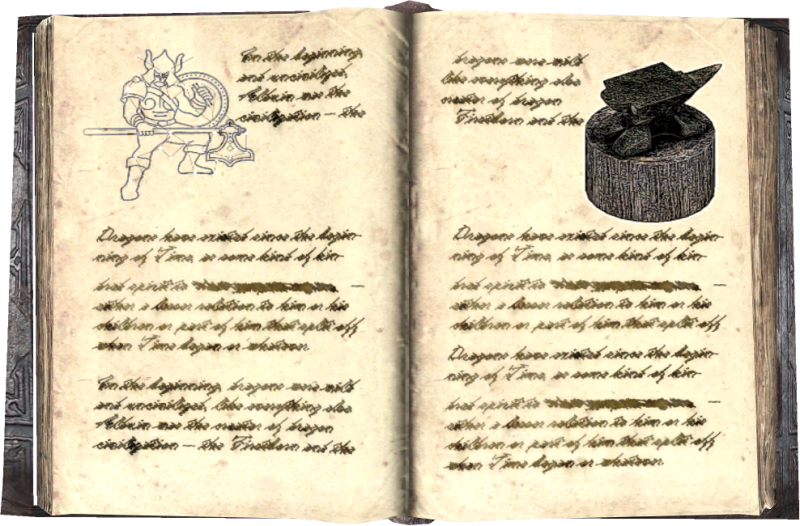 In the beginning,
and uncivilized,
Alduin was the
civilization — the
Dragons have existed since the begin-
ning of Time, as some kind of kin-
dred spirit to —
either a lesser relation to him or his
children or part of him that split off
when Time began or whatever.
In the beginning, dragons were wild
and uncivilized, like everything else
Alduin was the master of dragon
civilization — the Firstborn and the
dragons were wild
like everything else
master of dragon
Firstborn and the
Dragons have existed since the begin-
ning of Time, as some kind of kin-
dred spirit to —
either a lesser relation to him or his
children or part of him that split off
Dragons have existed since the begin-
ning of Time, as some kind of kin-
dred spirit to —
either a lesser relation to him or his
children or part of him that split off
when Time began or whatever.